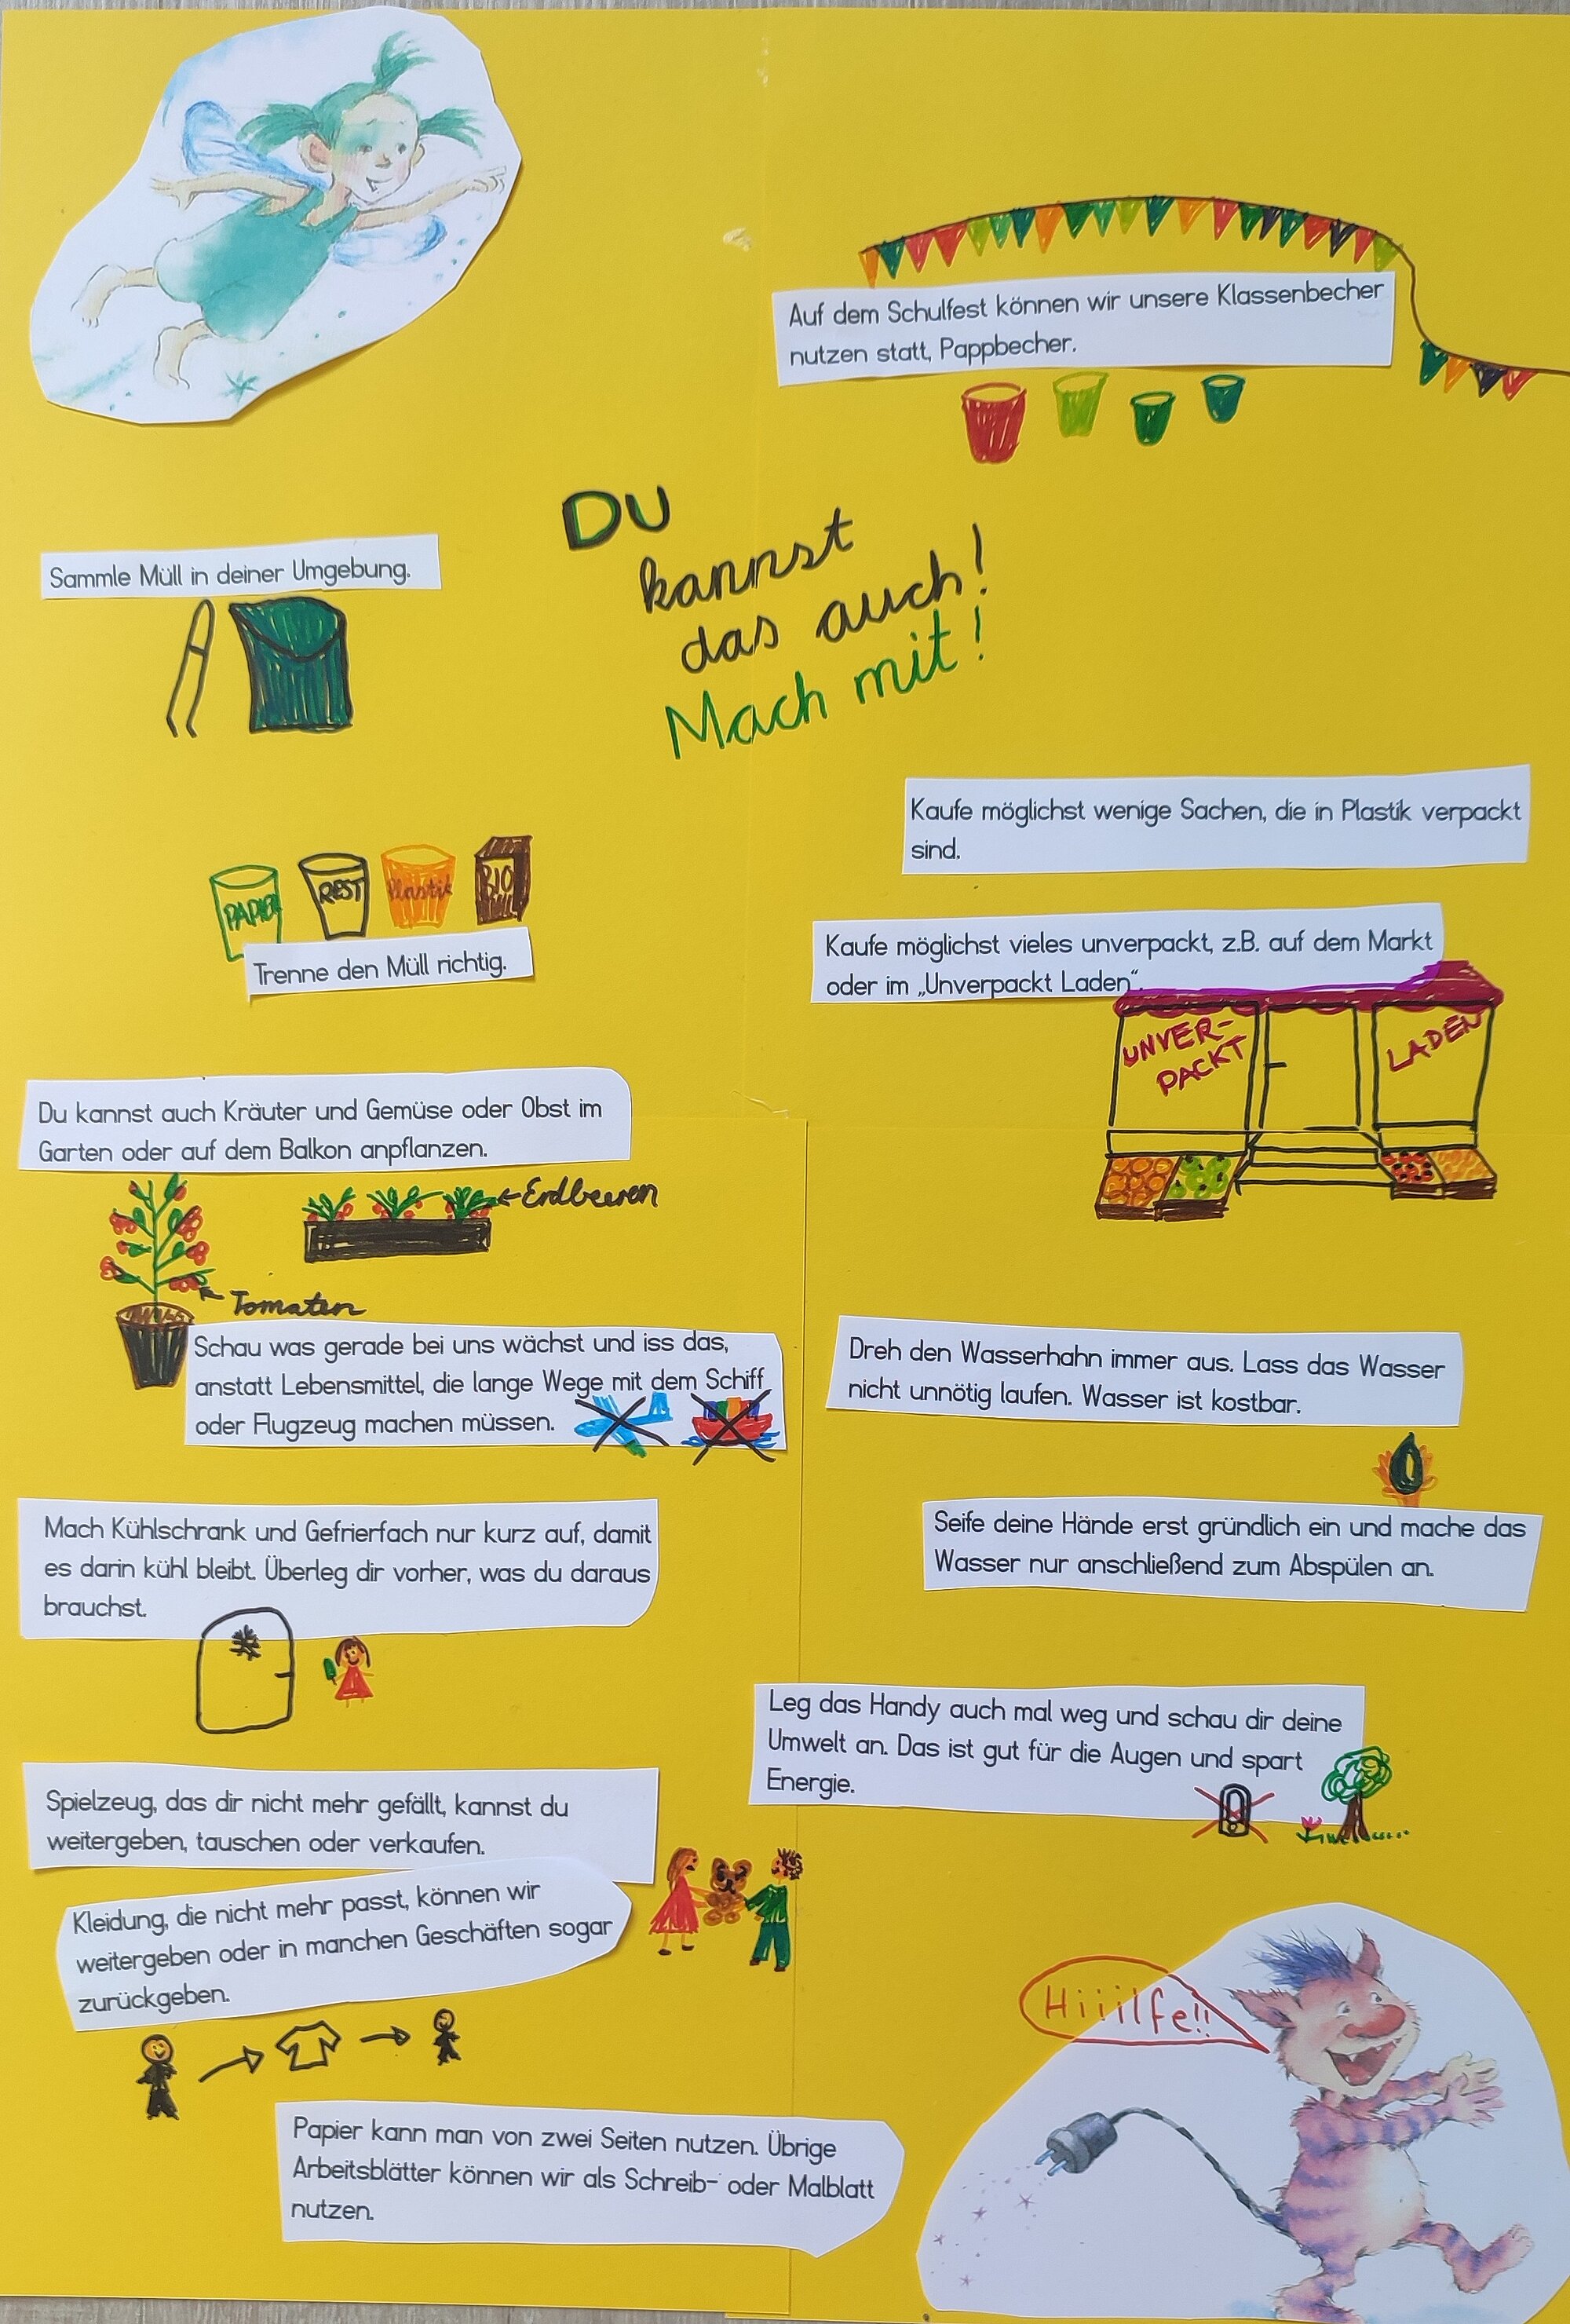 Auf dem Schulfest können wir unsere Klassenbecher
nutzen statt, Pappbecher.
DU
kannst
das auch!
Mach mit!
Sammle Müll in deiner Umgebung.
PAPIER
REST
Plastik
BIO
MÜLL
Trenne den Müll richtig.
Kaufe möglichst wenige Sachen, die in Plastik verpackt
sind.
Kaufe möglichst vieles unverpackt, z.B. auf dem Markt
oder im „Unverpackt Laden“.
UNVER-
PACKT
LADEN
Du kannst auch Kräuter und Gemüse oder Obst im
Garten oder auf dem Balkon anpflanzen.
Erdbeeren
Tomaten
Schau was gerade bei uns wächst und iss das,
anstatt Lebensmittel, die lange Wege mit dem Schiff
oder Flugzeug machen müssen.
Dreh den Wasserhahn immer aus. Lass das Wasser
nicht unnötig laufen. Wasser ist kostbar.
Seife deine Hände erst gründlich ein und mache das
Wasser nur anschließend zum Abspülen an.
Mach Kühlschrank und Gefrierfach nur kurz auf, damit
es darin kühl bleibt. Überleg dir vorher, was du daraus
brauchst.
Leg das Handy auch mal weg und schau dir deine
Umwelt an. Das ist gut für die Augen und spart
Energie.
Spielzeug, das dir nicht mehr gefällt, kannst du
weitergeben, tauschen oder verkaufen.
Kleidung, die nicht mehr passt, können wir
weitergeben oder in manchen Geschäften sogar
zurückgeben.
Hiiilfe!!
Papier kann man von zwei Seiten nutzen. Übrige
Arbeitsblätter können wir als Schreib- oder Malblatt
nutzen.